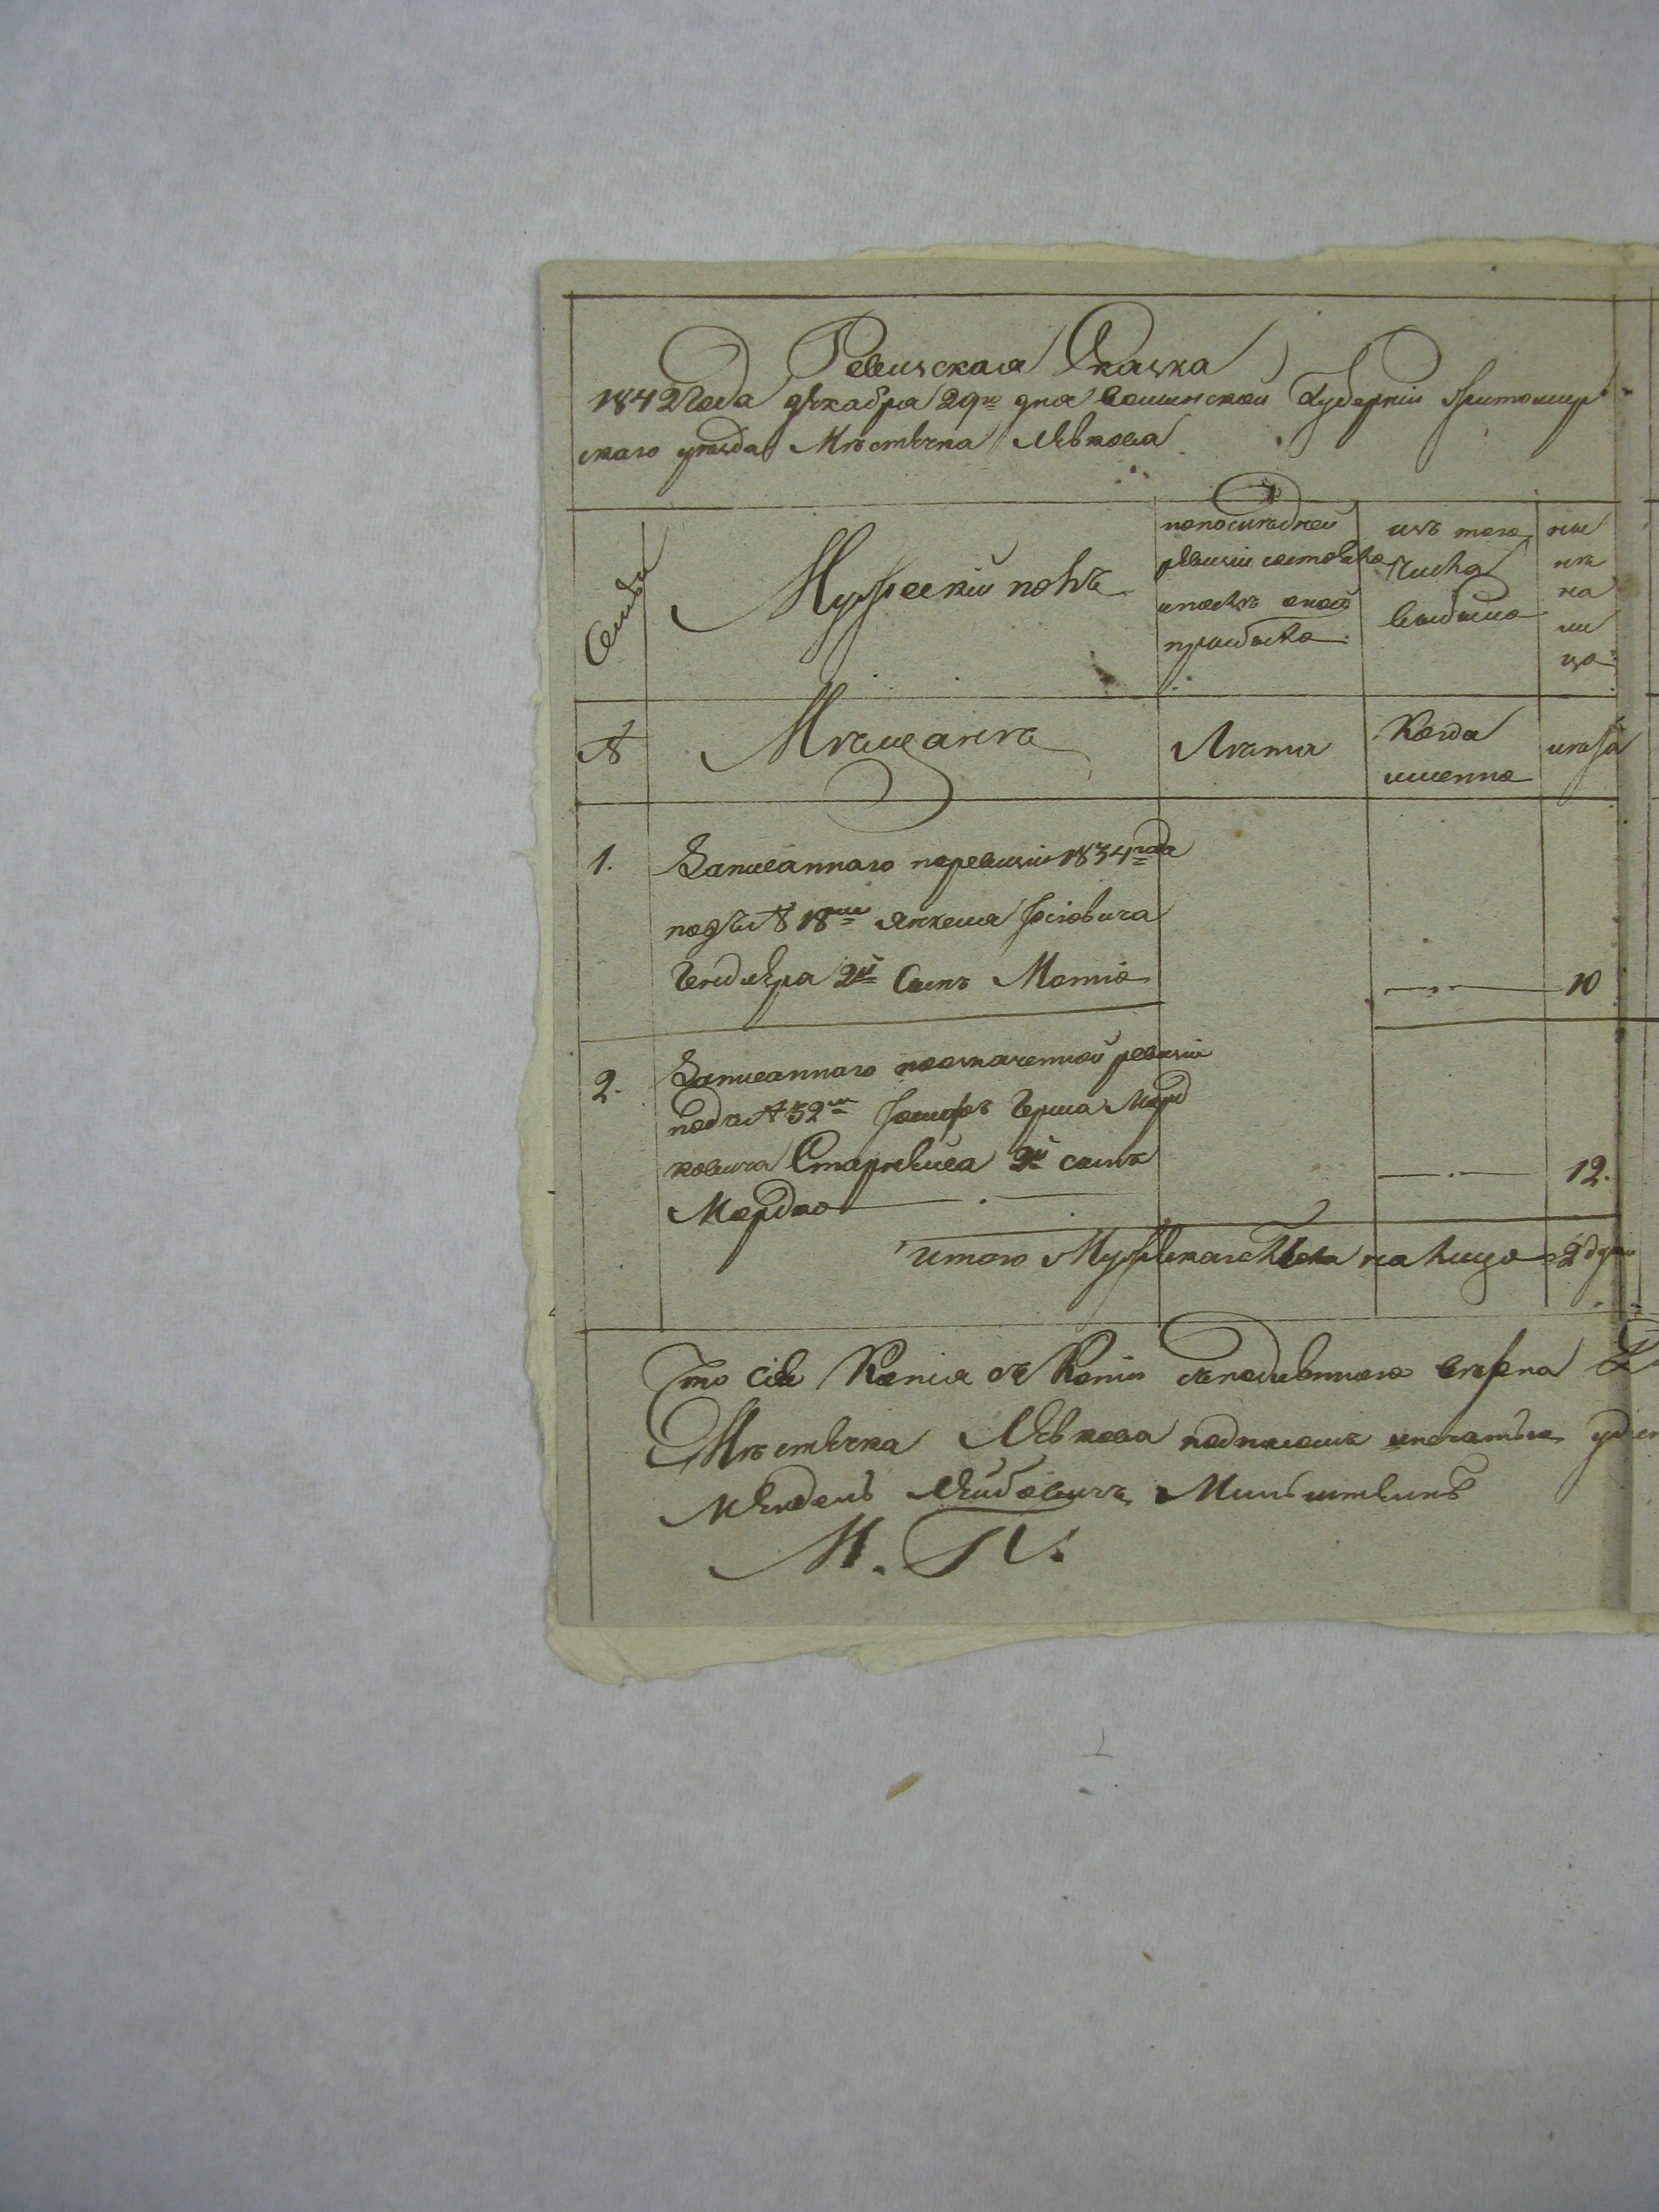 Ревизская Сказка
1842 года декабря 29го дня Волынской Губернии Житомир
скаго уезда Местечка Левкова
Семьи
Мужеский полъ
по последней
ревизии состояло
и после оной
прибыло
изъ того
числа
выбыло
ны
не
на
ли
цо
№
Мещане
Лета
Когда
именно
лета
1.
Записаннаго по ревизии 1834 года
подъ № 18м Янкеля Іосіовича
Бендлера 2й Сынъ Мотіо
10
2.
Записаннаго по означенной ревизии
подъ № 32м Герша Морд
ковича 2й сынъ
Мордко
12.
Итого Мужескаго пола на лицо 2 души
Что сія Копія съ Копіи с подлинного верна
Местечка Левкова подписомъ и печатью
Мендель Лейбовичъ Мильштейнъ
М. П.